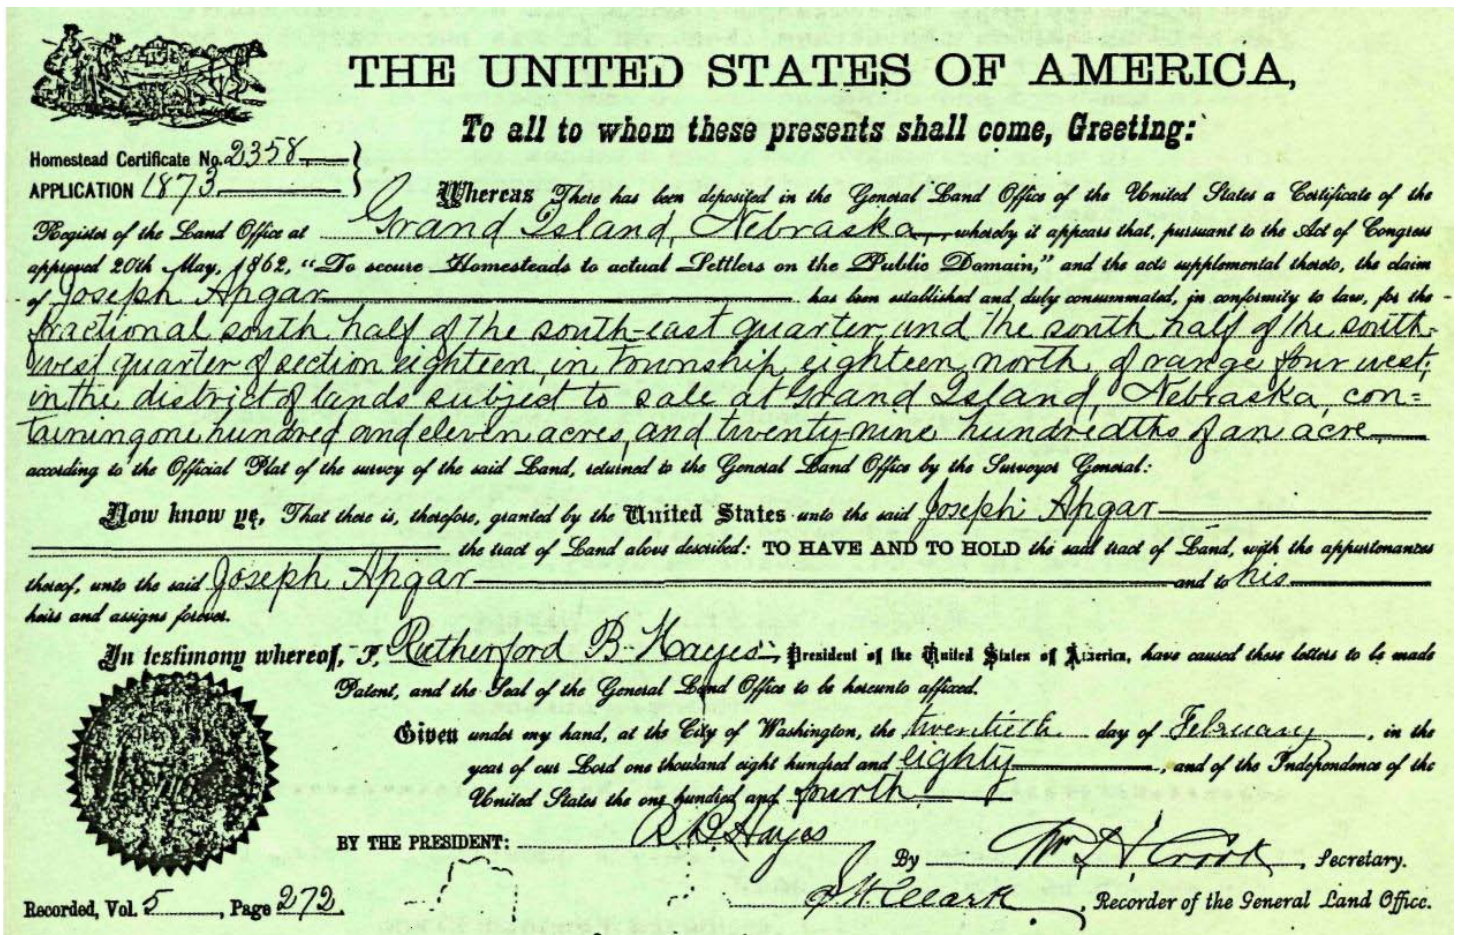 THE UNITED STATES OF AMERICA,
To all to whom these presents shall come, Greeting:
Homestead Certificate No. 2358
APPLICATION 1873
Whereas There has been deposited in the General Land Office of the United States a Certificate of the
Register of the Land Office at Grand Island, Nebraska, whereby it appears that, pursuant to the Act of Congress
approved 20th May, 1862, “To secure Homesteads to actual Settlers on the Public Domain,” and the acts supplemental thereto, the claim
of Joseph Apgar has been established and duly consummated, in conformity to law, for the
fractional south half of the south-east quarter, and the south half of the south-
west quarter of section eighteen, in township eighteen north, of range four west,
in the district of lands subject to sale at Grand Island, Nebraska, con=
taining one hundred and eleven acres, and twenty-nine hundredths of an acre,
according to the Official Plat of the survey of the said Land, returned to the General Land Office by the Surveyor General:
Now know ye, That there is, therefore, granted by the United States unto the said Joseph Apgar
the tract of Land above described: TO HAVE AND TO HOLD the said tract of Land, with the appurtenances
thereof, unto the said Joseph Apgar and to his
heirs and assigns forever.
In testimony whereof, I, Rutherford B. Hayes, President of the United States of America, have caused these letters to be made
Patent, and the Seal of the General Land Office to be hereunto affixed.
Given under my hand, at the City of Washington, the twentieth day of February, in the
year of our Lord one thousand eight hundred and eighty, and of the Independence of the
United States the one hundred and fourth.
BY THE PRESIDENT: R. B. Hayes
By Wm H. Crook, Secretary.
Recorded, Vol. 5, Page 272. S. W. Clark, Recorder of the General Land Office.